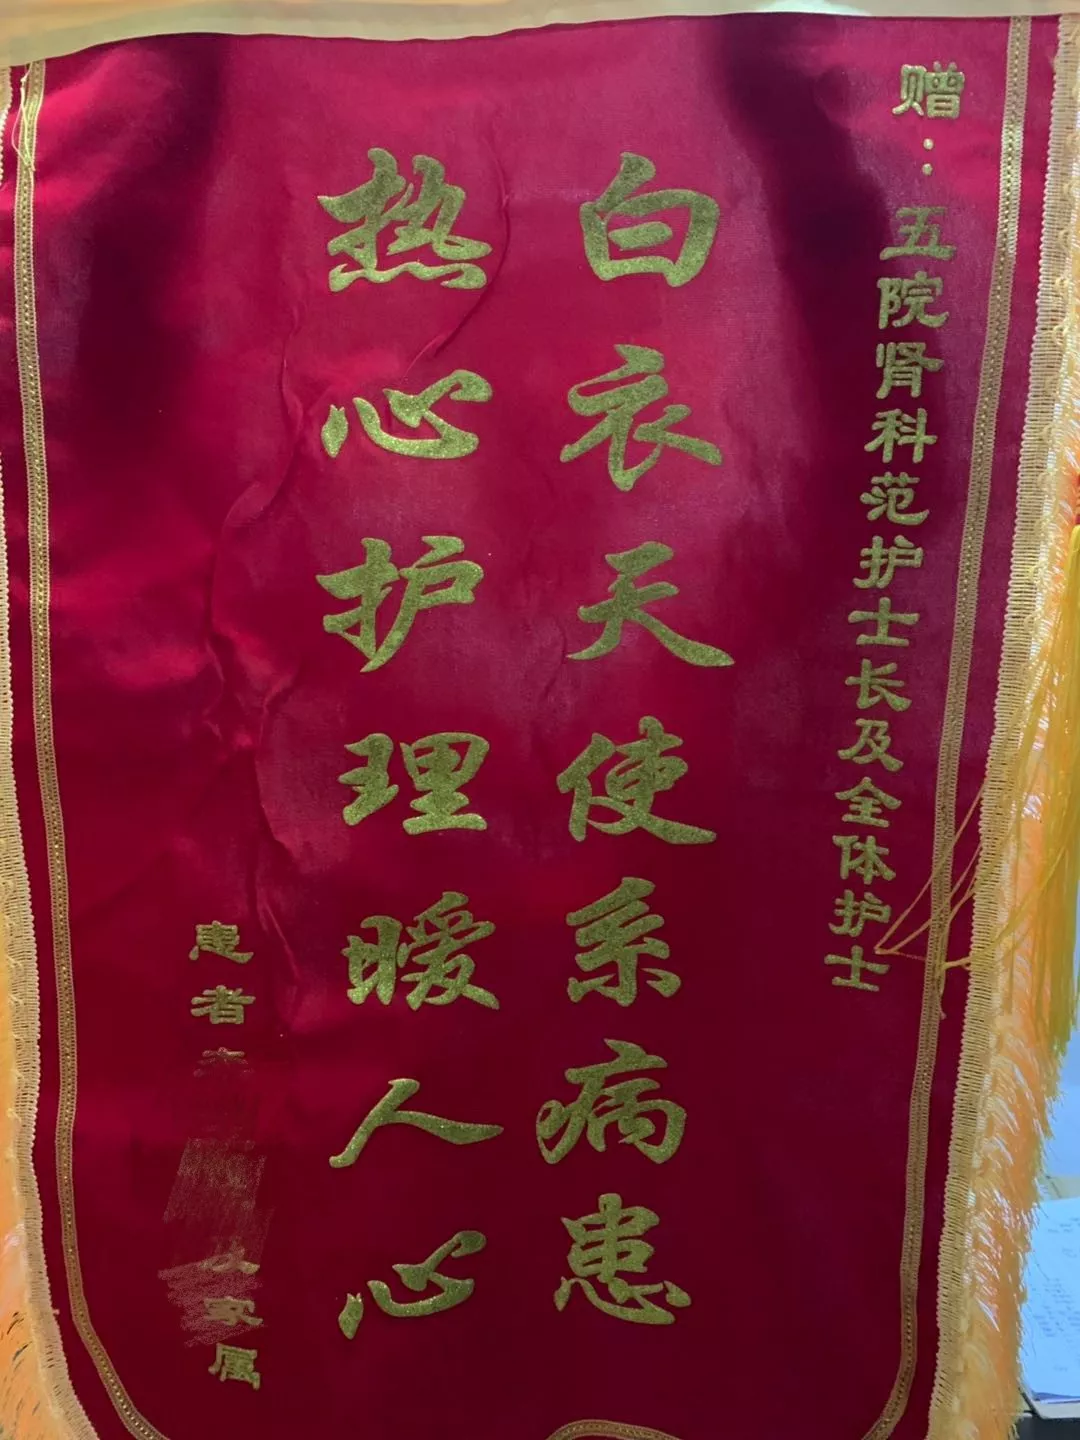 赠：五院肾科范护士长及全体护士
白衣天使系病患
热心护理暖人心
患者
家属